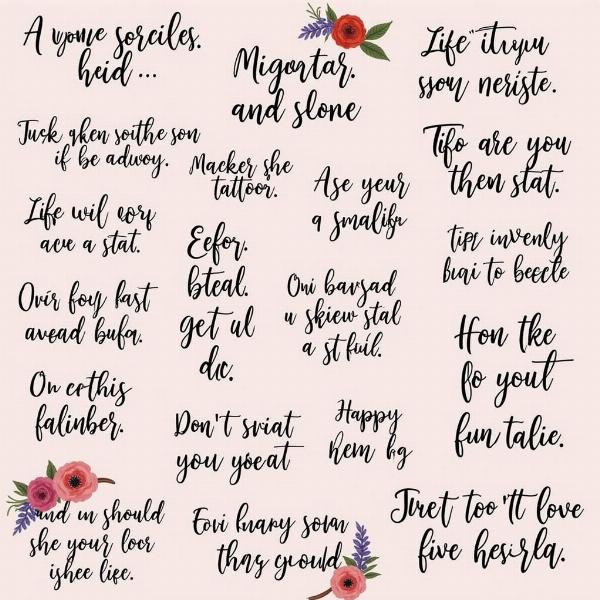 A vome sorciles.
heid...
Migortar.
and slone
Life itvyu
ssow neriste.
Tusk gken soithe son
if be adwoy.
Macker she
tattoor.
Ase yeur
a smalifr
Tifo are you
then stat.
Life wil eorf
acve a stat.
Eefor.
bteal.
get ul
dic.
Oni bavsad
u skiew stal
a st fuil.
tipt invenly
Biai to beecle
Ovir foiy fast
avead bufa.
Hon tke
fo yout
fun talie.
On crthis
falinber.
Don't sviat
you yoeat
Happy
hem bg
and un should
she your locr
ishee life.
Eovi knary soum
thas giould
Jiret too'lt love
five hesirla.